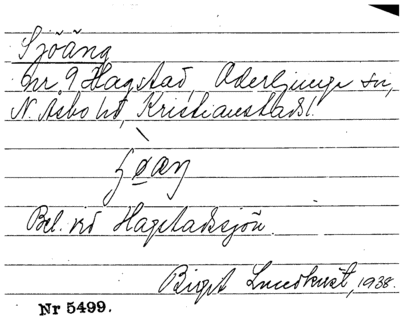 Sjöäng
nr 9 Hagstad, Oderljunga sn,
N. Åsbo hd, Kristianstads l.
Bel. vid Hagstadssjön.
Birgit Lundkvist, 1938.
Nr 5499.